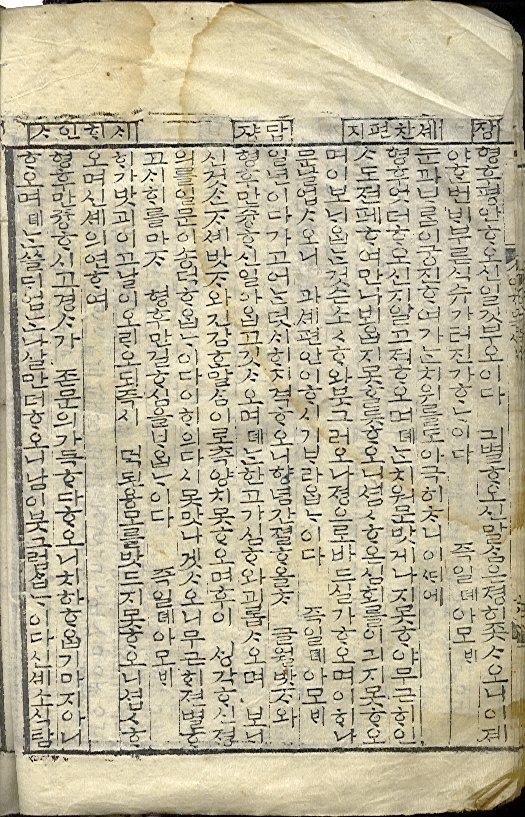 장
형후평안ᄒᆞ오신일깃부오이다 긔별ᄒᆞ오신말ᄉᆞᆷ은졍히죳ᄉᆞ오니이제
양ᄒᆞᆫ번비부를식슈가터진가ᄒᆞᄂᆞ이다 즉일뎨아모ᄇᆡ
셰찬편지
궁진ᄒᆞ여가ᄂᆞᆫ치위를도아극히차니이ᄯᅢ에
형후엇더ᄒᆞ오신지알고져ᄒᆞ오며뎨ᄂᆞᆫ치위로밧게나지못ᄒᆞ야무근희인
ᄉᆞ도젼폐ᄒᆞ여만나뵈옵지못ᄒᆞᆯ듯ᄒᆞ오니셥셥ᄒᆞ온심회를이긔지못ᄒᆞ오
며이보ᄂᆡ옵ᄂᆞᆫ것은소소ᄒᆞ와붓그러오나졍으로바드실가ᄒᆞ오며이ᄒᆡ나
믄날업ᄉᆞ오니 과셰편안이ᄒᆞ시기ᄇᆞ라옵ᄂᆞ이다 즉일뎨아모ᄇᆡ
답쟝
일년이다가고어ᄂᆞ덧ᄉᆡᄒᆡ지격ᄒᆞ오니향념간졀ᄒᆞ올ᄎᆞ 글월밧ᄌᆞ와
형후만즁ᄒᆞ신일아옵고깃ᄉᆞ오며뎨ᄂᆞᆫ한고가심ᄒᆞ와괴롭ᄉᆞ오며 보ᄂᆡ
신거ᄉᆞᆫᄌᆞ셰밧ᄌᆞ와진감ᄒᆞᆫ말ᄉᆞᆷ이로측양치못ᄒᆞ오며후이 ᄉᆡᆼ각ᄒᆞ신졍
의를일문이송덕ᄒᆞ옵ᄂᆞ이다이ᄒᆡ다시못맛나겟ᄉᆞ오니무근ᄒᆡ젼별ᄒᆞ
고ᄉᆡᄒᆡ를마ᄌᆞ 형후만길ᄒᆞ심을ᄇᆞ옵ᄂᆞ이다 즉일뎨아모ᄇᆡ
ᄉᆡᄒᆡ인ᄉᆞ
ᄒᆡ가밧괴이고날이오ᄅᆡ오되즉시 덕된용모를밧드지못ᄒᆞ오니셥셥ᄒᆞ
오며신셰의연ᄒᆞ여
형후만즁ᄒᆞ시고경ᄉᆞ가 죤문의가득ᄒᆞ다ᄒᆞ오니치하ᄒᆞ옵기마지아니
ᄒᆞ오며뎨ᄂᆞᆫ쓸ᄃᆡ업ᄂᆞᆫ나살만더ᄒᆞ오니남이붓그럽ᄉᆞᆸᄂᆞ이다신셰소식탐